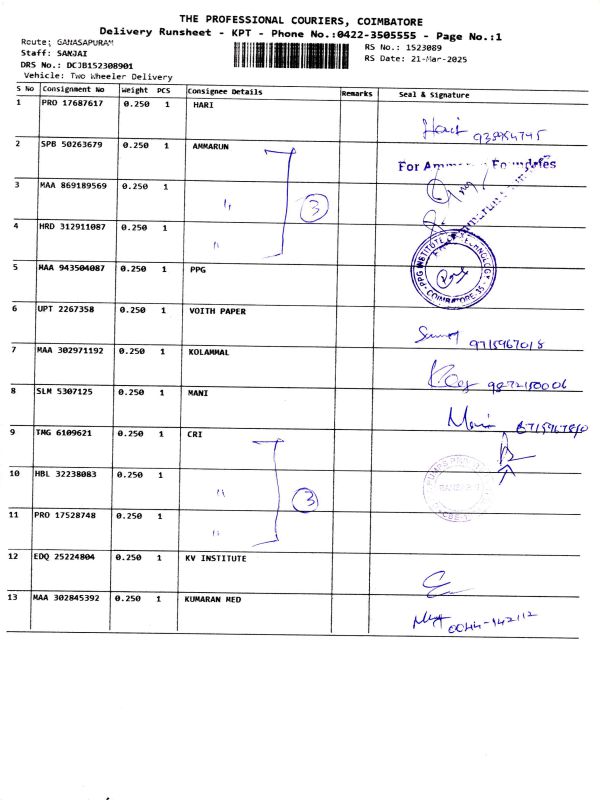 THE PROFESSIONAL COURIERS, COIMBATORE
Delivery Runsheet - KPT - Phone No.:0422-3505555 - Page No.:1
Route: GANASAPURAM
Staff: SANJAI
DRS No.: DCJB152308901
Vehicle: Two Wheeler Delivery
RS No.: 1523089
RS Date: 21-Mar-2025
S No Consignment No Weight PCS Consignee Details Remarks Seal & Signature
1 PRO 17687617 0.250 1 HARI
Hari
2 SPB 50263679 0.250 1 AMMARUN
For Foundries
3 MAA 869189569 0.250 1 〃
3
4 HRD 312911087 0.250 1 〃
5 MAA 943504087 0.250 1 PPG
PPG INSTITUTE OF TECHNOLOGY
COIMBATORE-35
6 UPT 2267358 0.250 1 VOITH PAPER
9715967018
7 MAA 302971192 0.250 1 KOLAMMAL
9872150006
8 SLM 5307125 0.250 1 MANI
Mani
9 TMG 6109621 0.250 1 CRI
10 HBL 32238083 0.250 1 〃
3
11 PRO 17528748 0.250 1 〃
12 EDQ 25224804 0.250 1 KV INSTITUTE
13 MAA 302845392 0.250 1 KUMARAN MED
0044-142112